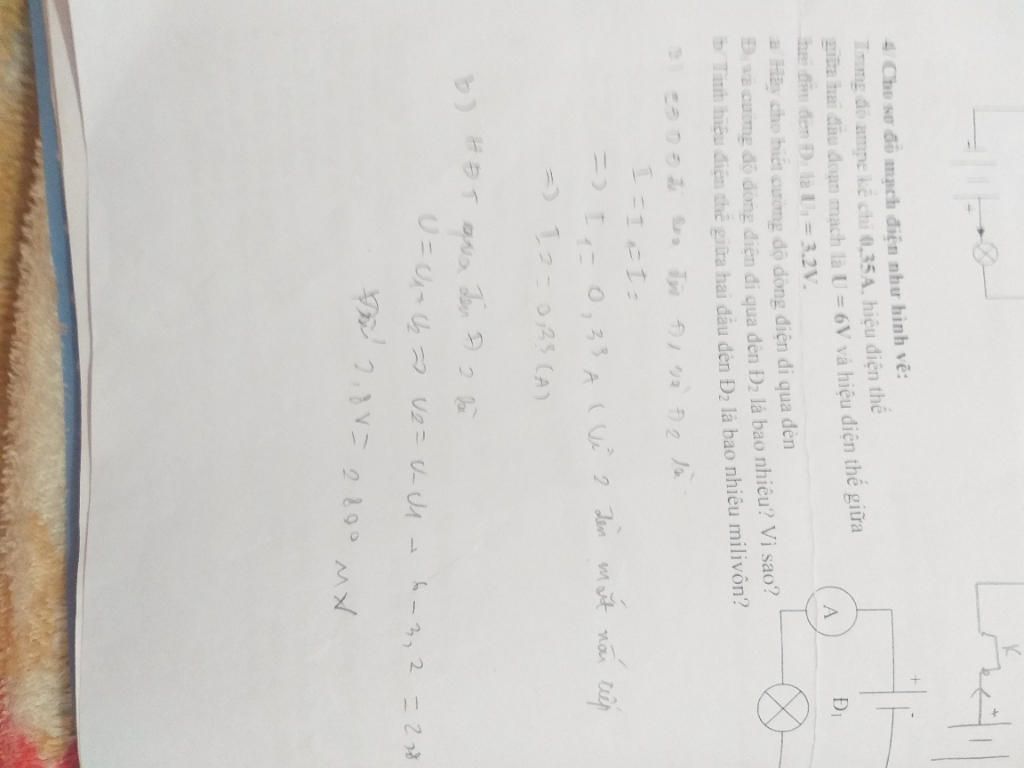 K
+
-
+
4/ Cho sơ đồ mạch điện như hình vẽ:
Trong đó ampe kế chỉ 0,35A, hiệu điện thế
giữa hai đầu đoạn mạch là U = 6V và hiệu điện thế giữa
hai đầu đèn Đ1 là U1 = 3,2V.
a/ Hãy cho biết cường độ dòng điện đi qua đèn
Đ1 và cường độ dòng điện đi qua đèn Đ2 là bao nhiêu? Vì sao?
b/ Tính hiệu điện thế giữa hai đầu đèn Đ2 là bao nhiêu milivôn?
+ -
A
Đ1
a) CĐDĐ đi qua đèn Đ1 và Đ2 là
I = I1 = I2
=> I1 = 0,35A (vì 2 đèn mắt nối tiếp
=> I2 = 0,35 (A)
b) HĐT qua đèn Đ2 là
U = U1 + U2 => U2 = U - U1 = 6 - 3,2 = 2,8
2,8V = 2800 mV